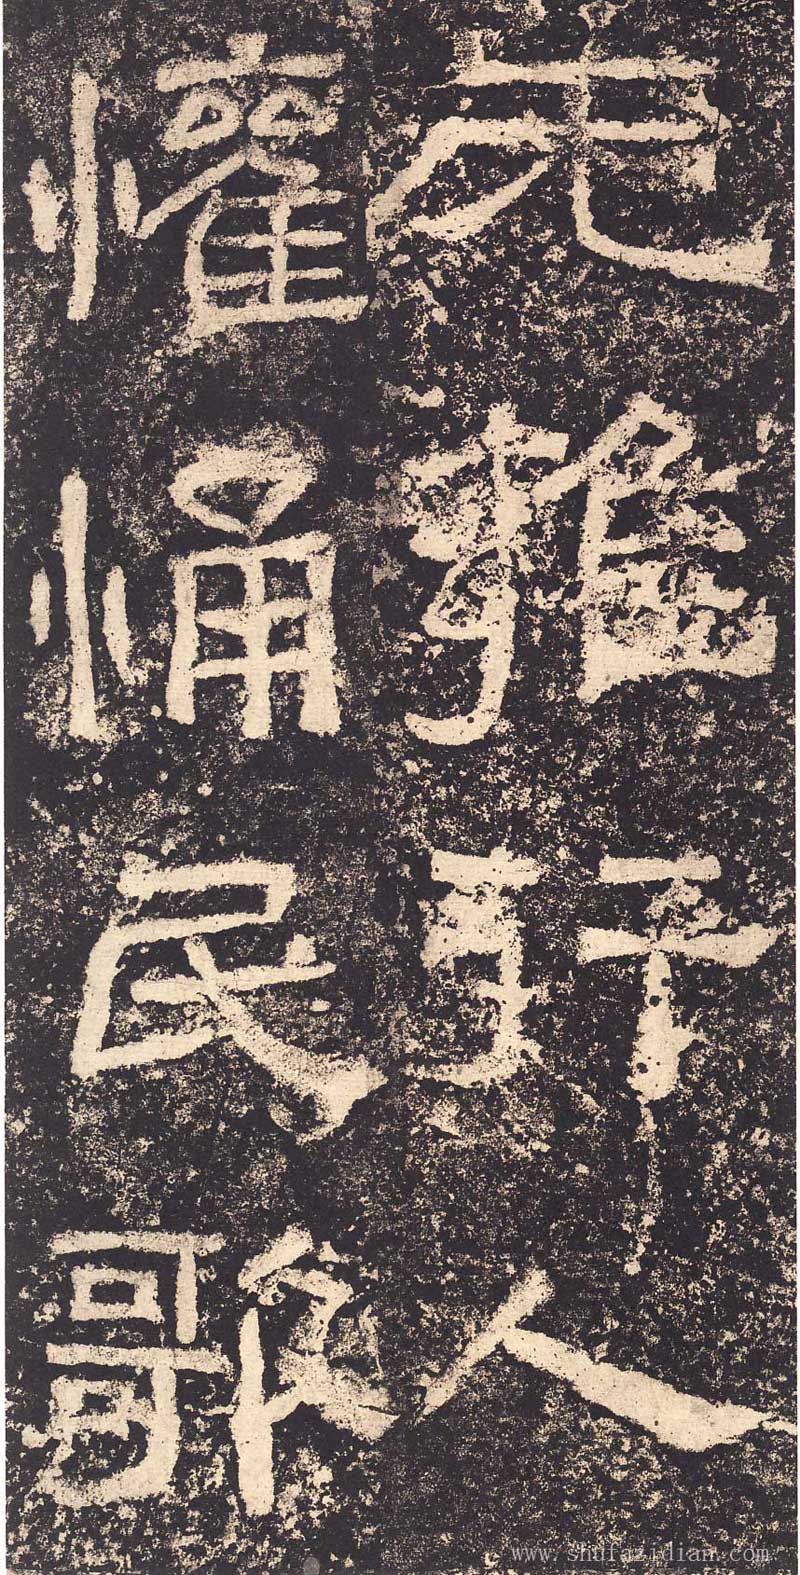 无雍行人
懽悀民歌
www.shufazidian.com